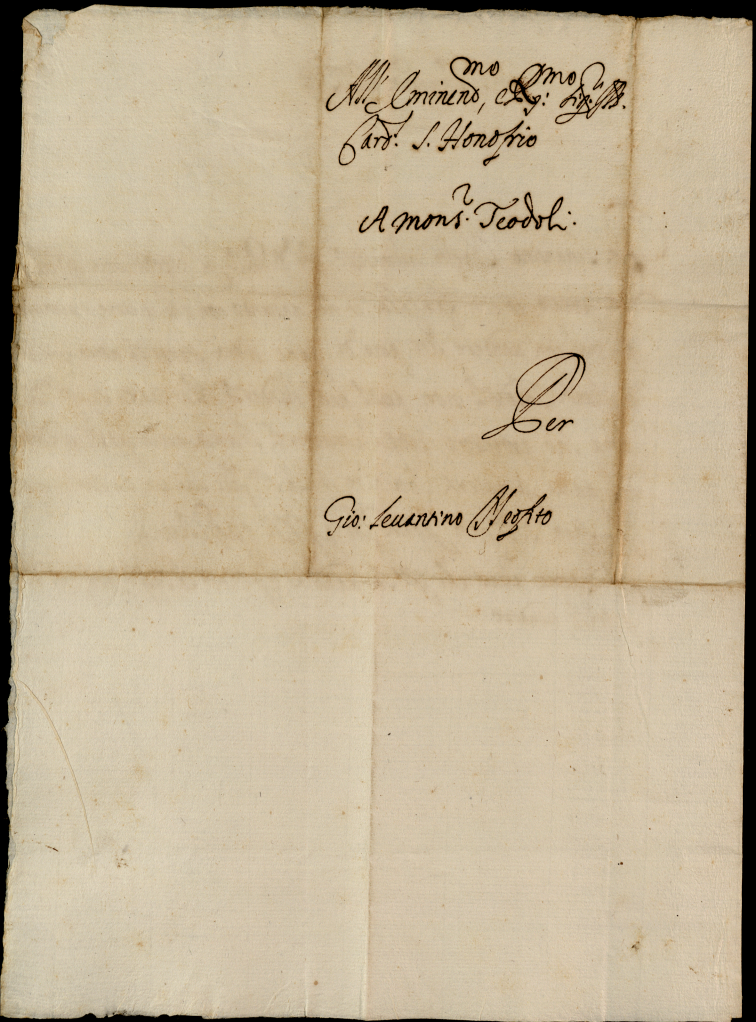 All' Eminen.mo, e R.mo Sig.r
Card.l S. Honofrio
A mons.r Teodoli.
Per
Gio: Leuantino Neofito